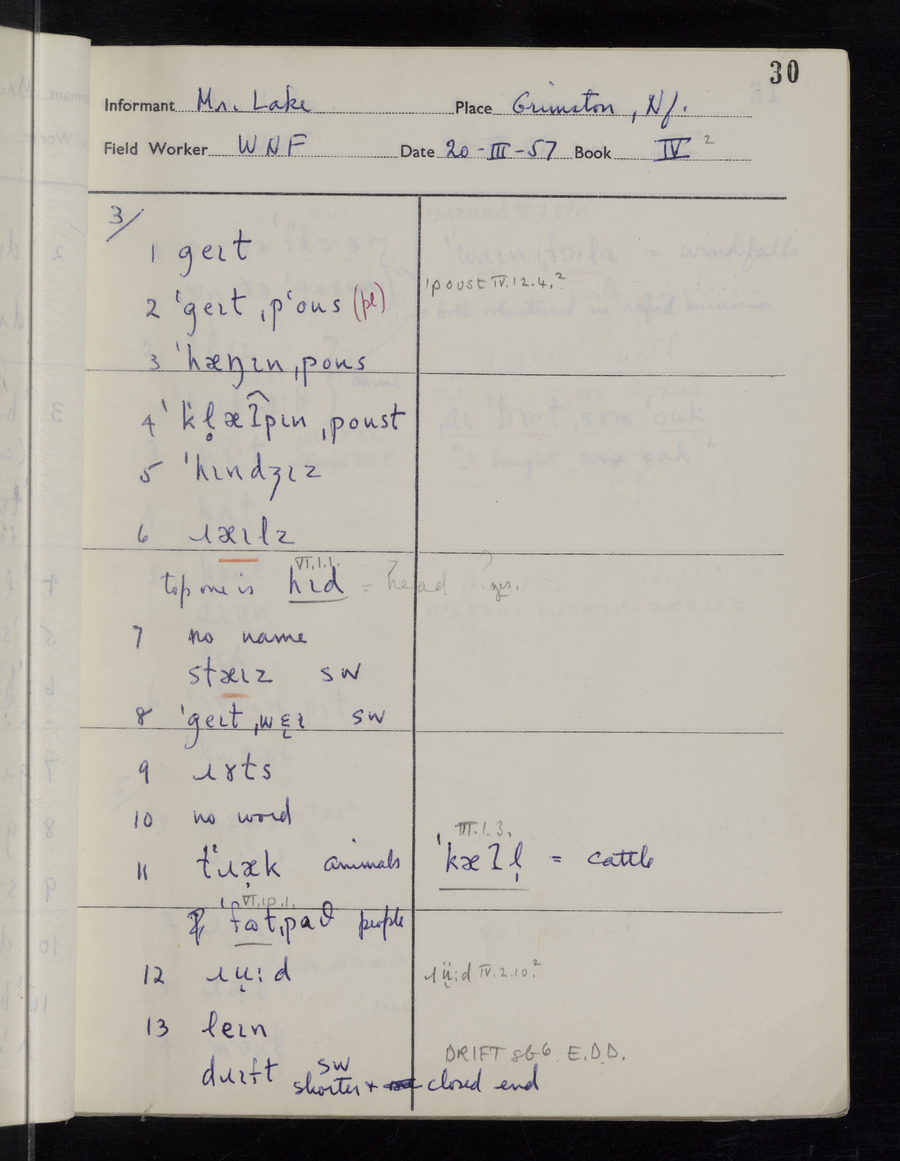 30
Informant Mr. Lake Place Grimston, Nf.
Field Worker WNF Date 20-III-57 Book IV 2
3/
1 geɪt
2 ˈgeɪt ˌpʻous (pl) ˈpoust IV.12.4.²
3 ˈhæŋɪn ˌpous
4 ˈkl̥æʔpɪn ˌpoust
5 ˈhɪndʒɪz
6 ɹæɪlz
top one is VI.1.1. hɪd = head yes.
7 no name
stæɪz SW
8 ˈgeɪt ˌwɛɪ SW
9 ɹɤts
10 no word
11 tʻɹæk animals III.1.3. ˈkæʔl̩ = cattle
ˈfɷt ˌpaθ people
12 ɹü:d ɹü:d IV.2.10.²
13 leɪn
dɹɪft SW DRIFT sb 6 E.D.D.
shorter + closed end